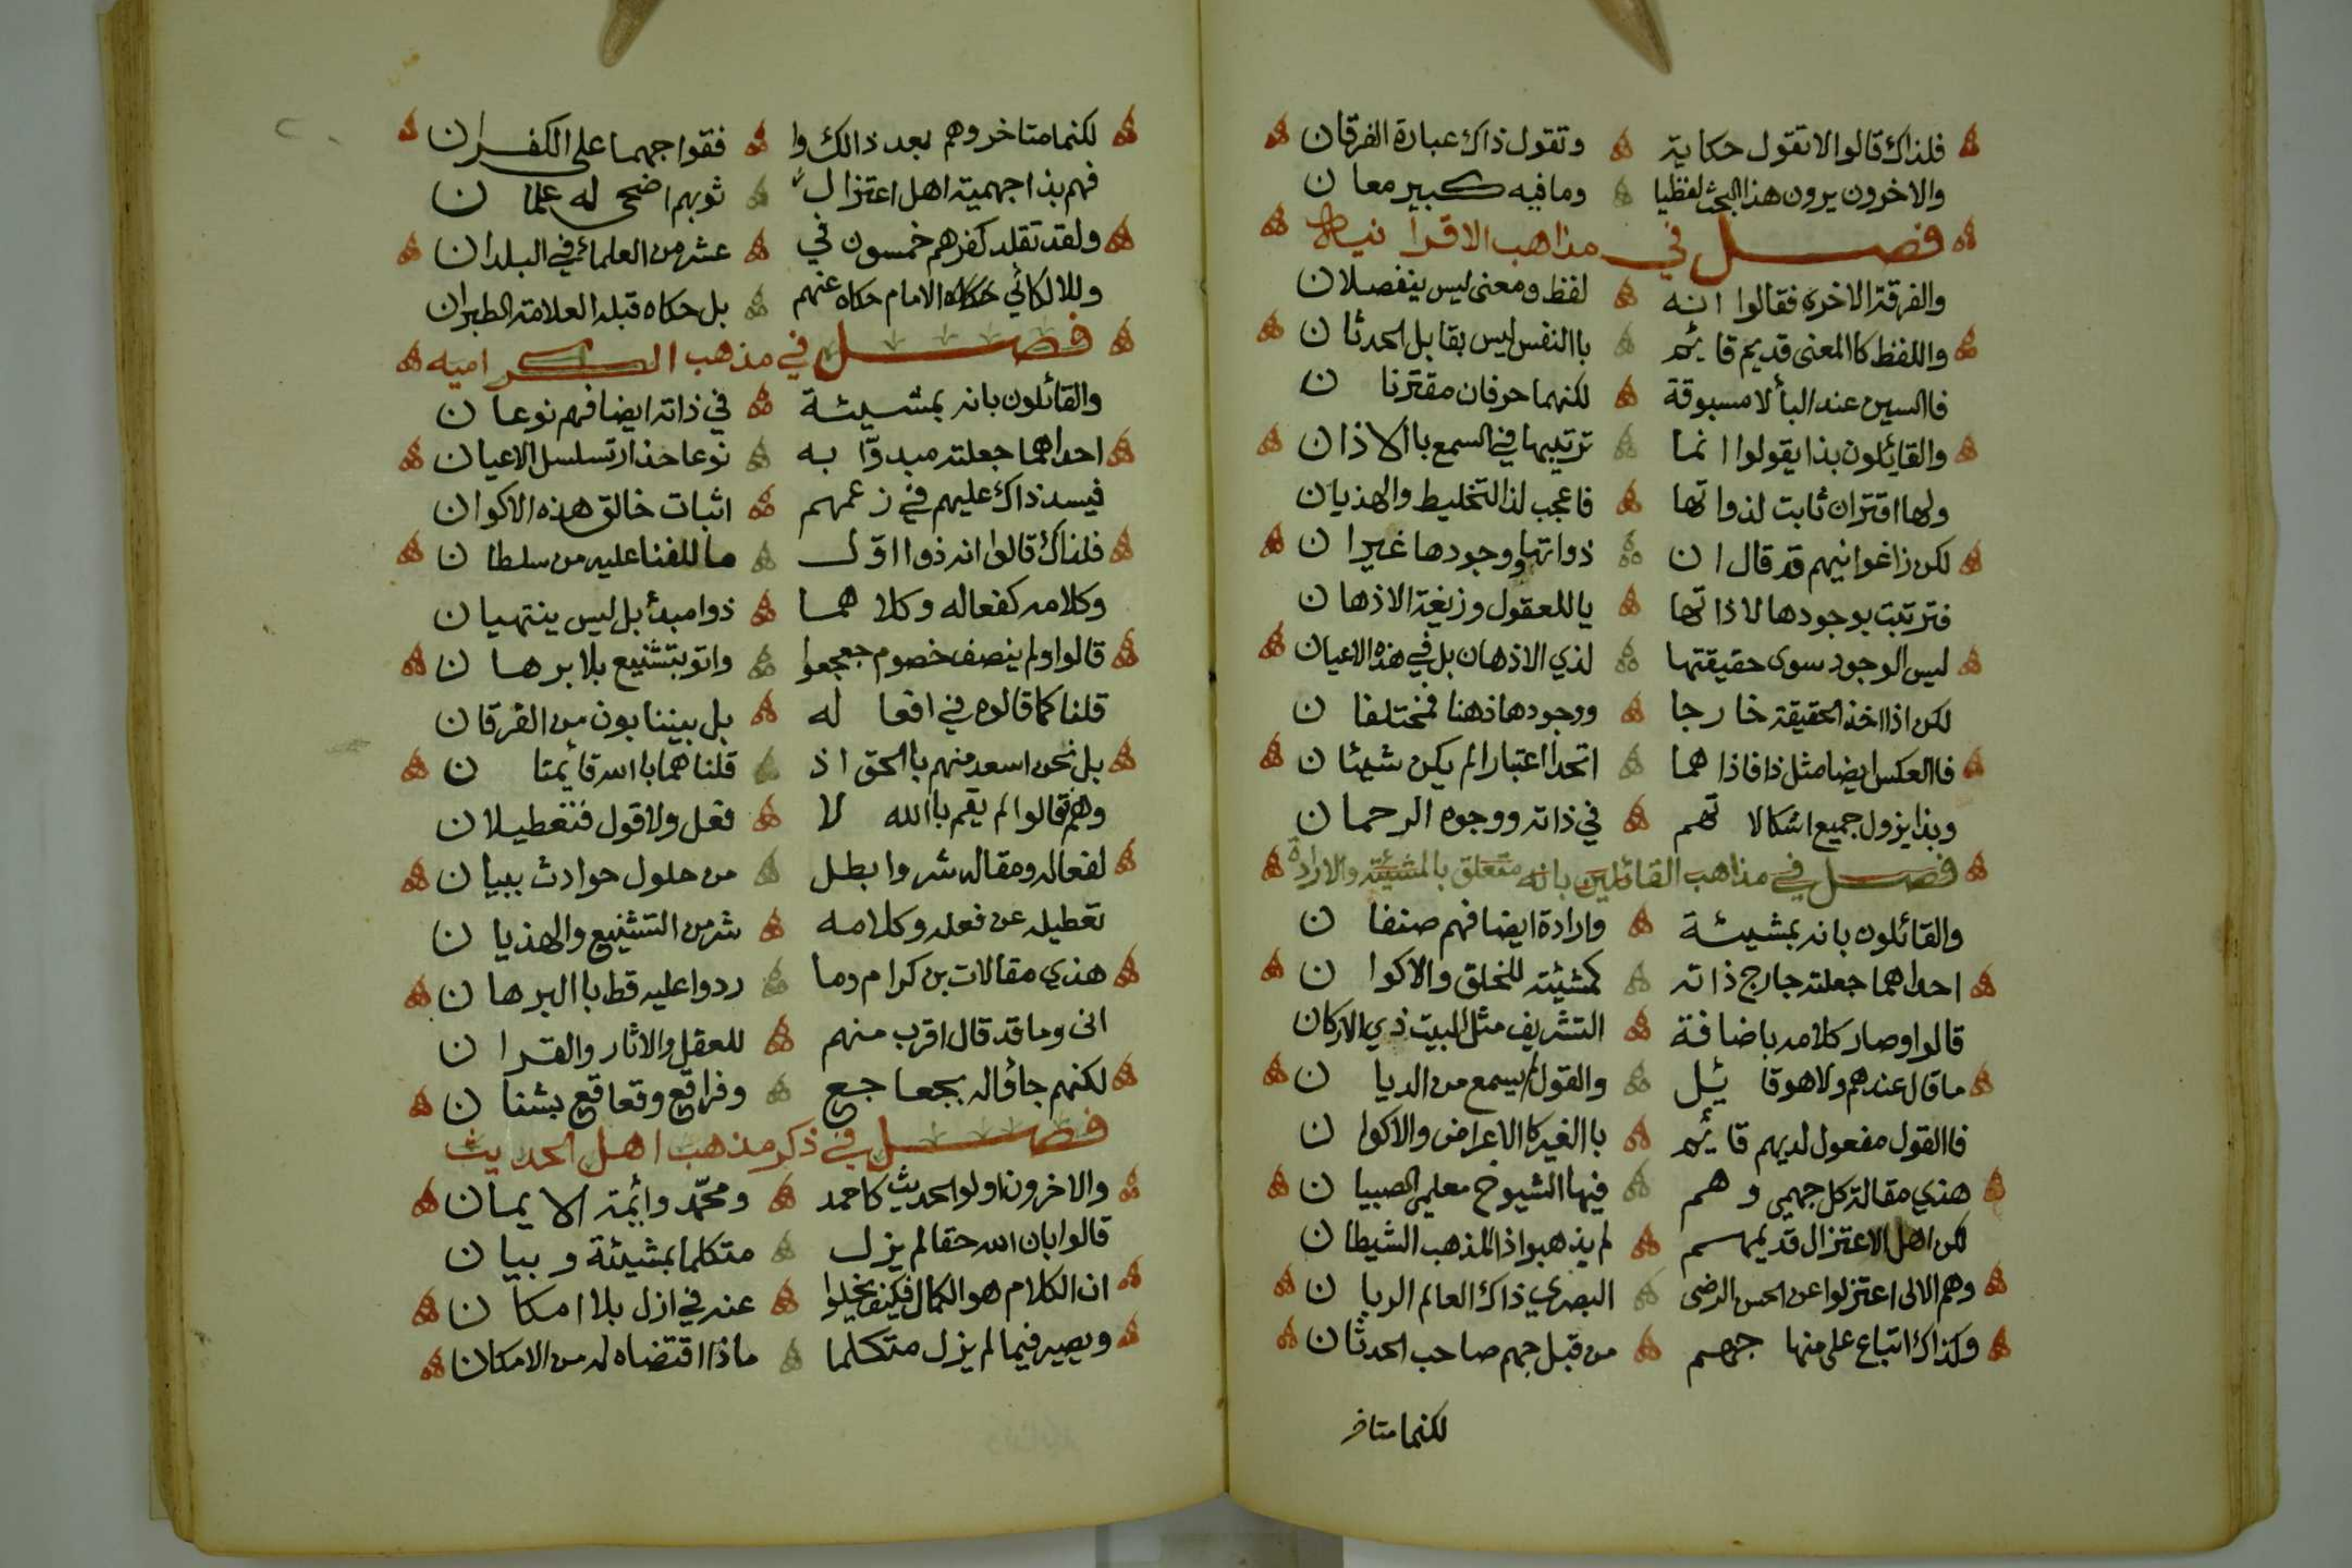 فلذاك قالوا لا تقول حكاية وتقول ذاك عبارة الفرقان
والاخرون يرون هذا البحث لفظيا وما فيه كبير معان
فصل في مذاهب الاقترانيه
والفرقة الاخرى فقالوا انه لفظ ومعنى ليس ينفصلان
واللفظ كا المعنى قديم قايئم باالنفس ليس بقابل الحدثان
فاالسين عند البأ لا مسبوقة لكنهما حرفان مقترنان
والقايئلون بذا يقولوا انما ترتيبها في السمع باالاذان
ولها اقتران ثابت لذواتها فاعجب لذا التخليط والهذيان
لكن زاغوانيهم قد قال ان ذواتها ووجودها غيران
فترتبت بوجودها لا ذاتها ياللعقول وزيغة الاذهان
ليس الوجود سوى حقيقتها لذي الاذهان بل في هذه الاعيان
لكن اذا اخذ الحقيقة خارجا ووجودها ذهنا فمختلفان
فاالعكس ايضا مثل ذا فاذا هما اتحدا اعتبارا لم يكن شيئان
وبذا يزول جميع اشكالاتهم في ذاته ووجوه الرحمان
فصل في مذاهب القائلين بانه متعلق بالمشيئة والارادة
والقائلون بانه بمشيئة وارادة ايضا فهم صنفان
احداهما جعلته جارج ذاته كمشيئته للخلق والاكوان
قالوا وصار كلامه باضافة التشريف مثل البيت ذي الاركان
ما قال عندهم ولا هو قايئل والقول لم يسمع من الديان
فاالقول مفعول لديهم قايئم باالغير كا الاعراض والاكوان
هذي مقالة كل جهمي وهم فيها الشيوخ معلمي الصبيان
لكن اهل الاعتزال قديمهم لم يذهبوا ذا المذهب الشيطان
وهم الالى اعتزلوا عن الحسن الرضى البصري ذاك العالم الربان
وكذاك اتباع على منهاجهم من قبل جهم صاحب الحدثان
لكنما متاخر
لكنما متاخروهم بعد ذالك وا فقوا جهما على الكفران
فهم بذا جهمية اهل اعتزال ثوبهم اضحى له علمان
ولقد تقلد كفرهم خمسون في عشر من العلماء في البلدان
وللالكائي حكاه الامام حكاه عنهم بل حكاه قبله العلامة الطبران
فصل في مذهب الكراميه
والقائلون بانه بمشيئة في ذاته ايضا فهم نوعان
احداهما جعلته مبدوّا به نوعا حذار تسلسل الاعيان
فيسد ذاك عليهم في زعمهم اثبات خالق هذه الاكوان
فلذاك قالوا انه ذوا اوّل ما للفنا عليه من سلطان
وكلامه كفعاله وكلاهما ذوا مبدأ بل ليس ينتهيان
قالوا ولم ينصف خصوم جعجعوا واتو بتشنيع بلا برهان
قلنا كما قالوه في افعاله بل بيننا بون من الفرقان
بل نحن اسعد منهم باالحق اذ قلنا هما باالله قايئمتان
وهم قالوا لم يقم باالله لا فعل ولا قول فتعطيلان
لفعاله ومقاله شر وابطل من حلول حوادث ببيان
تعطيله عن فعله وكلامه شر من التشنيع والهذيان
هذي مقالات بن كرام وما ردوا عليه قط باالبرهان
انى وما قد قال اقرب منهم للعقل والاثار والقران
لكنهم جاؤا له بجعاجع وفراقع وقعاقع بشنان
فصل في ذكر مذهب اهل الحديث
والاخرون اولوا الحديث كاحمد ومحمّد وائمة الايمان
قالوا بان الله حقا لم يزل متكلما بمشيئة وبيان
ان الكلام هو الكمال فكيف يخلوا عنه في ازل بلا امكان
ويصير فيما لم يزل متكلما ماذا اقتضاه له من الامكان